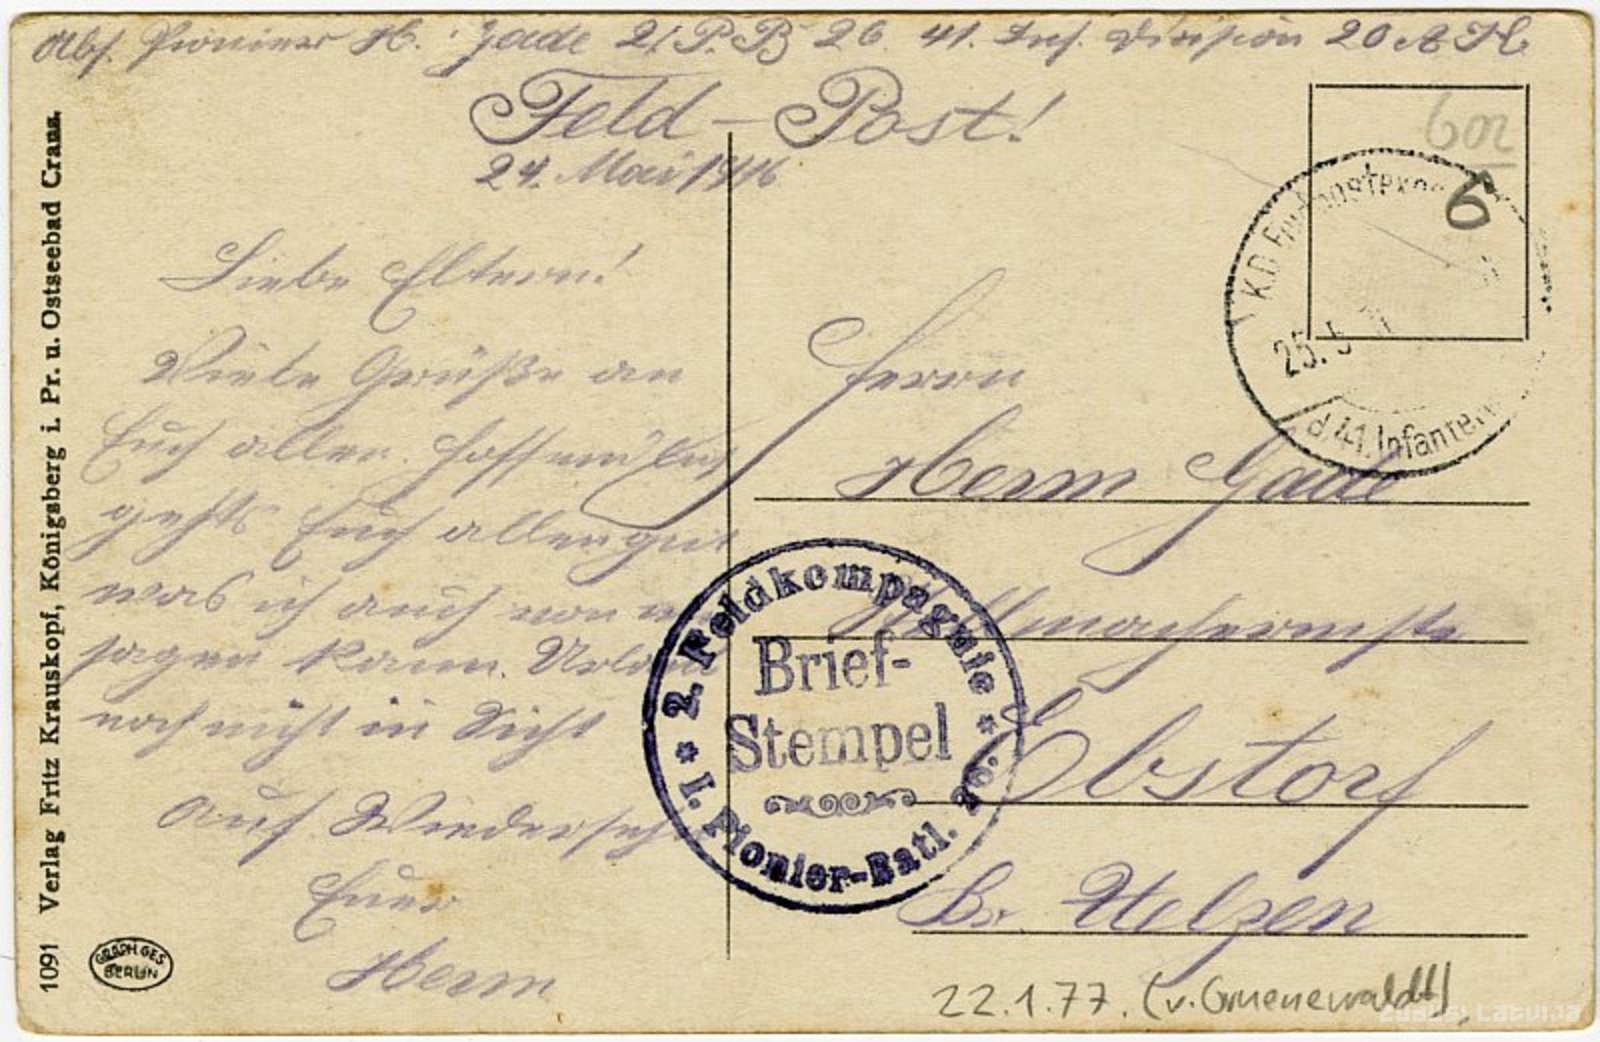 Abs. Pionier H. Gade 2/P.B 26 41. Inf. Division 20 A.K.
Feld-Post!
24. Mai 1916
Liebe Eltern!
Viele Grüße an
Euch allen. Hoffentlich
gehts Euch allen gut
was ich auch von
sagen kann. Urlaub
noch nicht in Sicht
Auf Wiedersehn
Euer
Herm
Herrn
Herm Gade
Ebstorf
Br. Uelzen
602
6
K.D. Feldpostexp.
25. 5
d. 41. Infanterie
2. Feldkompagnie
Brief-
Stempel
I. Pionier-Batl. 26.
Verlag Fritz Krauskopf, Königsberg i. Pr. u. Ostseebad Cranz.
1091
GRAPH. GES.
BERLIN
22.1.77. (v. Gruenewaldt)
Zudusi Latvija